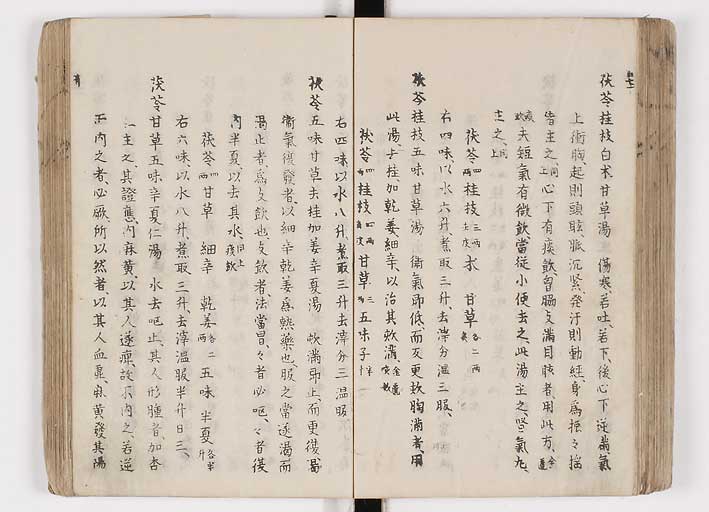 茯苓桂枝白朮甘草湯 傷寒、若吐、若下、後心下逆満氣
上衝胸起則頭眩、脈沉緊、発汗則動経、身為振々揺
者主之、同上 心下有痰飲、胸脇支満目眩者、用此方、金匱
痰飲 夫短氣有微飲、當従小便去之、此湯主之、腎氣丸
主之、同上
茯苓四両 桂枝三両 朮 甘草各二両
右四味以水六升、煮取三升、去滓分温三服、
茯苓桂枝五味甘草湯 衝氣即低、而反更欬胸満者、用
此湯、去桂加乾姜細辛、以治其欬満、金匱痰欬
茯苓四両 桂枝四両 甘草三両 五味子半升
右四味以水八升、煮取三升去滓分三温服
茯苓五味甘草去桂加姜辛夏湯 欬満即止、而更復渇
衝氣復發者、以細辛乾姜為熱藥也、服之當遂渇而
渇止者、為支飲也、支飲者、法當冒、々者必嘔、々者復
内半夏、以去其水、同上痰飲
茯苓四両 甘草 細辛 乾姜各二両 五味 半夏各半升
右六味、以水八升、煮取三升、去滓温服半升日三、
茯苓甘草五味辛夏仁湯 水去嘔止、其人形腫者、加杏
仁主之、其證應内麻黄以其人遂痺、故不内之、若逆
而内之者、必厥所以然者以其人血虚、麻黄發其陽